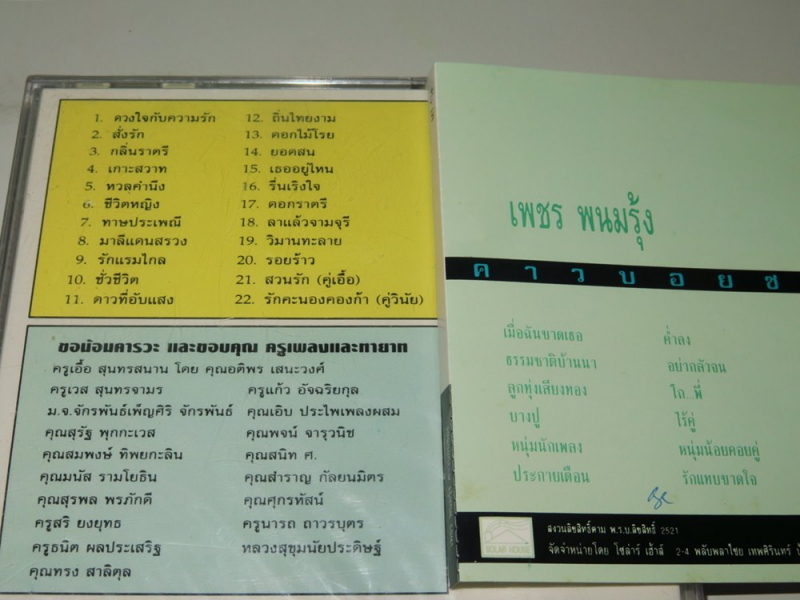 1. ดวงใจกับความรัก
2. สั่งรัก
3. กลิ่นราตรี
4. เกาะสวาท
5. หวลคำนึง
6. ชีวิตหญิง
7. ทาษประเพณี
8. มาลีแดนสรวง
9. รักแรมไกล
10. ชั่วชีวิต
11. ดาวที่อับแสง
12. ถิ่นไทยงาม
13. ดอกไม้โรย
14. ยอดสน
15. เธออยู่ไหน
16. รื่นเริงใจ
17. ดอกราตรี
18. ลาแล้วจามจุรี
19. วิมานทะลาย
20. รอยร้าว
21. สวนรัก (คู่เอื้อ)
22. รักคะนองคองก้า (คู่วินัย)
ขอน้อมคารวะ และขอบคุณ ครูเพลงและทายาท
ครูเอื้อ สุนทรสนาน โดย คุณอติพร เสนะวงศ์
ครูเวส สุนทรจามร
ครูแก้ว อัจฉริยกุล
ม.จ.จักรพันธ์เพ็ญศิริ จักรพันธ์
คุณเอิบ ประไพเพลงผสม
คุณสุรัฐ พุกกะเวส
คุณพจน์ จารุวนิช
คุณสมพงษ์ ทิพยกะลิน
คุณสนิท ศ.
คุณมนัส รามโยธิน
คุณสำราญ กัลยนมิตร
คุณสุรพล พรภักดี
คุณศุกรหัสน์
ครูสริ ยงยุทธ
ครูนารถ ถาวรบุตร
ครูธนิต ผลประเสริฐ
หลวงสุขุมนัยประดิษฐ์
คุณทรง สาลิตุล
เพชร พนมรุ้ง
คาวบอยซ
เมื่อฉันขาดเธอ
ธรรมชาติบ้านนา
ลูกทุ่งเสียงทอง
บางปู
หนุ่มนักเพลง
ประกายเดือน
ค่ำลง
อย่ากลัวจน
โถ..พี่
ไร้คู่
หนุ่มน้อยคอยคู่
รักแทบขาดใจ
SOLAR HOUSE
สงวนลิขสิทธิ์ตาม พ.ร.บ.ลิขสิทธิ์ 2521
จัดจำหน่ายโดย โซล่าร์ เฮ้าส์ 2-4 พลับพลาไชย เทพศิรินทร์